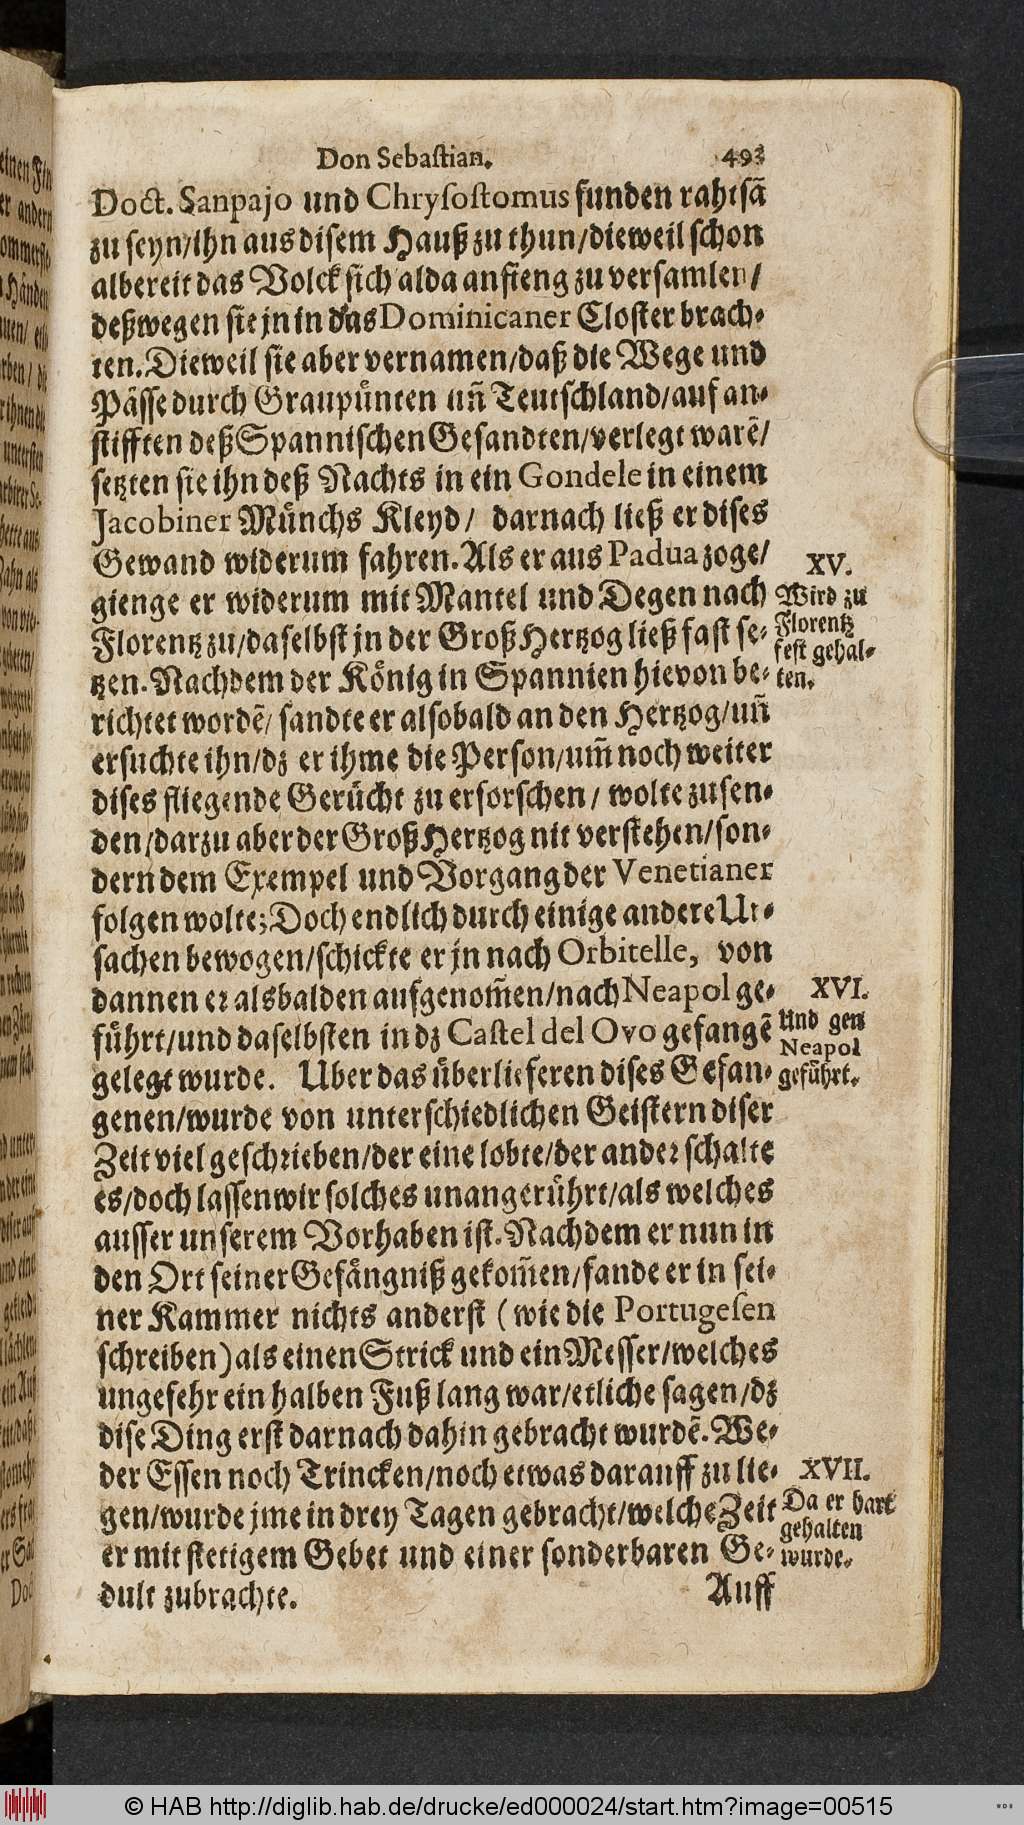 Don Sebastian. 493
Doct. Sanpajo und Chrysostomus funden rahtsã
zu seyn/ihn aus disem Hauß zu thun/dieweil schon
albereit das Volck sich alda anfieng zu versamlen/
deßwegen sie jn in das Dominicaner Closter brach-
ten. Dieweil sie aber vernamen/daß die Wege und
Pässe durch Graupünten uñ Teutschland/auf an-
stifften deß Spannischen Gesandten/verlegt warẽ/
setzten sie ihn deß Nachts in ein Gondele in einem
Jacobiner Münchs Kleyd/ darnach ließ er dises
Gewand widerum fahren. Als er aus Padua zoge/
gienge er widerum mit Mantel und Degen nach
Florentz zu/daselbst jn der Groß Hertzog ließ fast se-
tzen. Nachdem der König in Spannien hievon be-
richtet wordẽ/ sandte er alsobald an den Hertzog/uñ
ersuchte ihn/dz er ihme die Person/um̃ noch weiter
dises fliegende Gerücht zu erforschen/ wolte zusen-
den/darzu aber der Groß Hertzog nit verstehen/son-
dern dem Exempel und Vorgang der Venetianer
folgen wolte; Doch endlich durch einige andere Ur-
sachen bewogen/schickte er jn nach Orbitelle, von
dannen er alsbalden aufgenom̃en/nach Neapol ge-
führt/und daselbsten in dz Castel del Ovo gefangẽ
gelegt wurde. Uber das überlieferen dises Gefan-
genen/wurde von unterschiedlichen Geistern diser
Zeit viel geschrieben/der eine lobte/der ander schalte
es/doch lassen wir solches unangerührt/als welches
ausser unserem Vorhaben ist. Nachdem er nun in
den Ort seiner Gefängniß gekom̃en/fande er in sei-
ner Kammer nichts anderst (wie die Portugesen
schreiben) als einen Strick und ein Messer/welches
ungefehr ein halben Fuß lang war/etliche sagen/dz
dise Ding erst darnach dahin gebracht wurdẽ. We-
der Essen noch Trincken/noch etwas darauff zu lie-
gen/wurde jme in drey Tagen gebracht/welche Zeit
er mit stetigem Gebet und einer sonderbaren Ge-
dult zubrachte.
Auff
XV.
Wird zu
Florentz
fest gehal-
ten.
XVI.
Und gen
Neapol
geführt.
XVII.
Da er hart
gehalten
wurde.
© HAB http://diglib.hab.de/drucke/ed000024/start.htm?image=00515